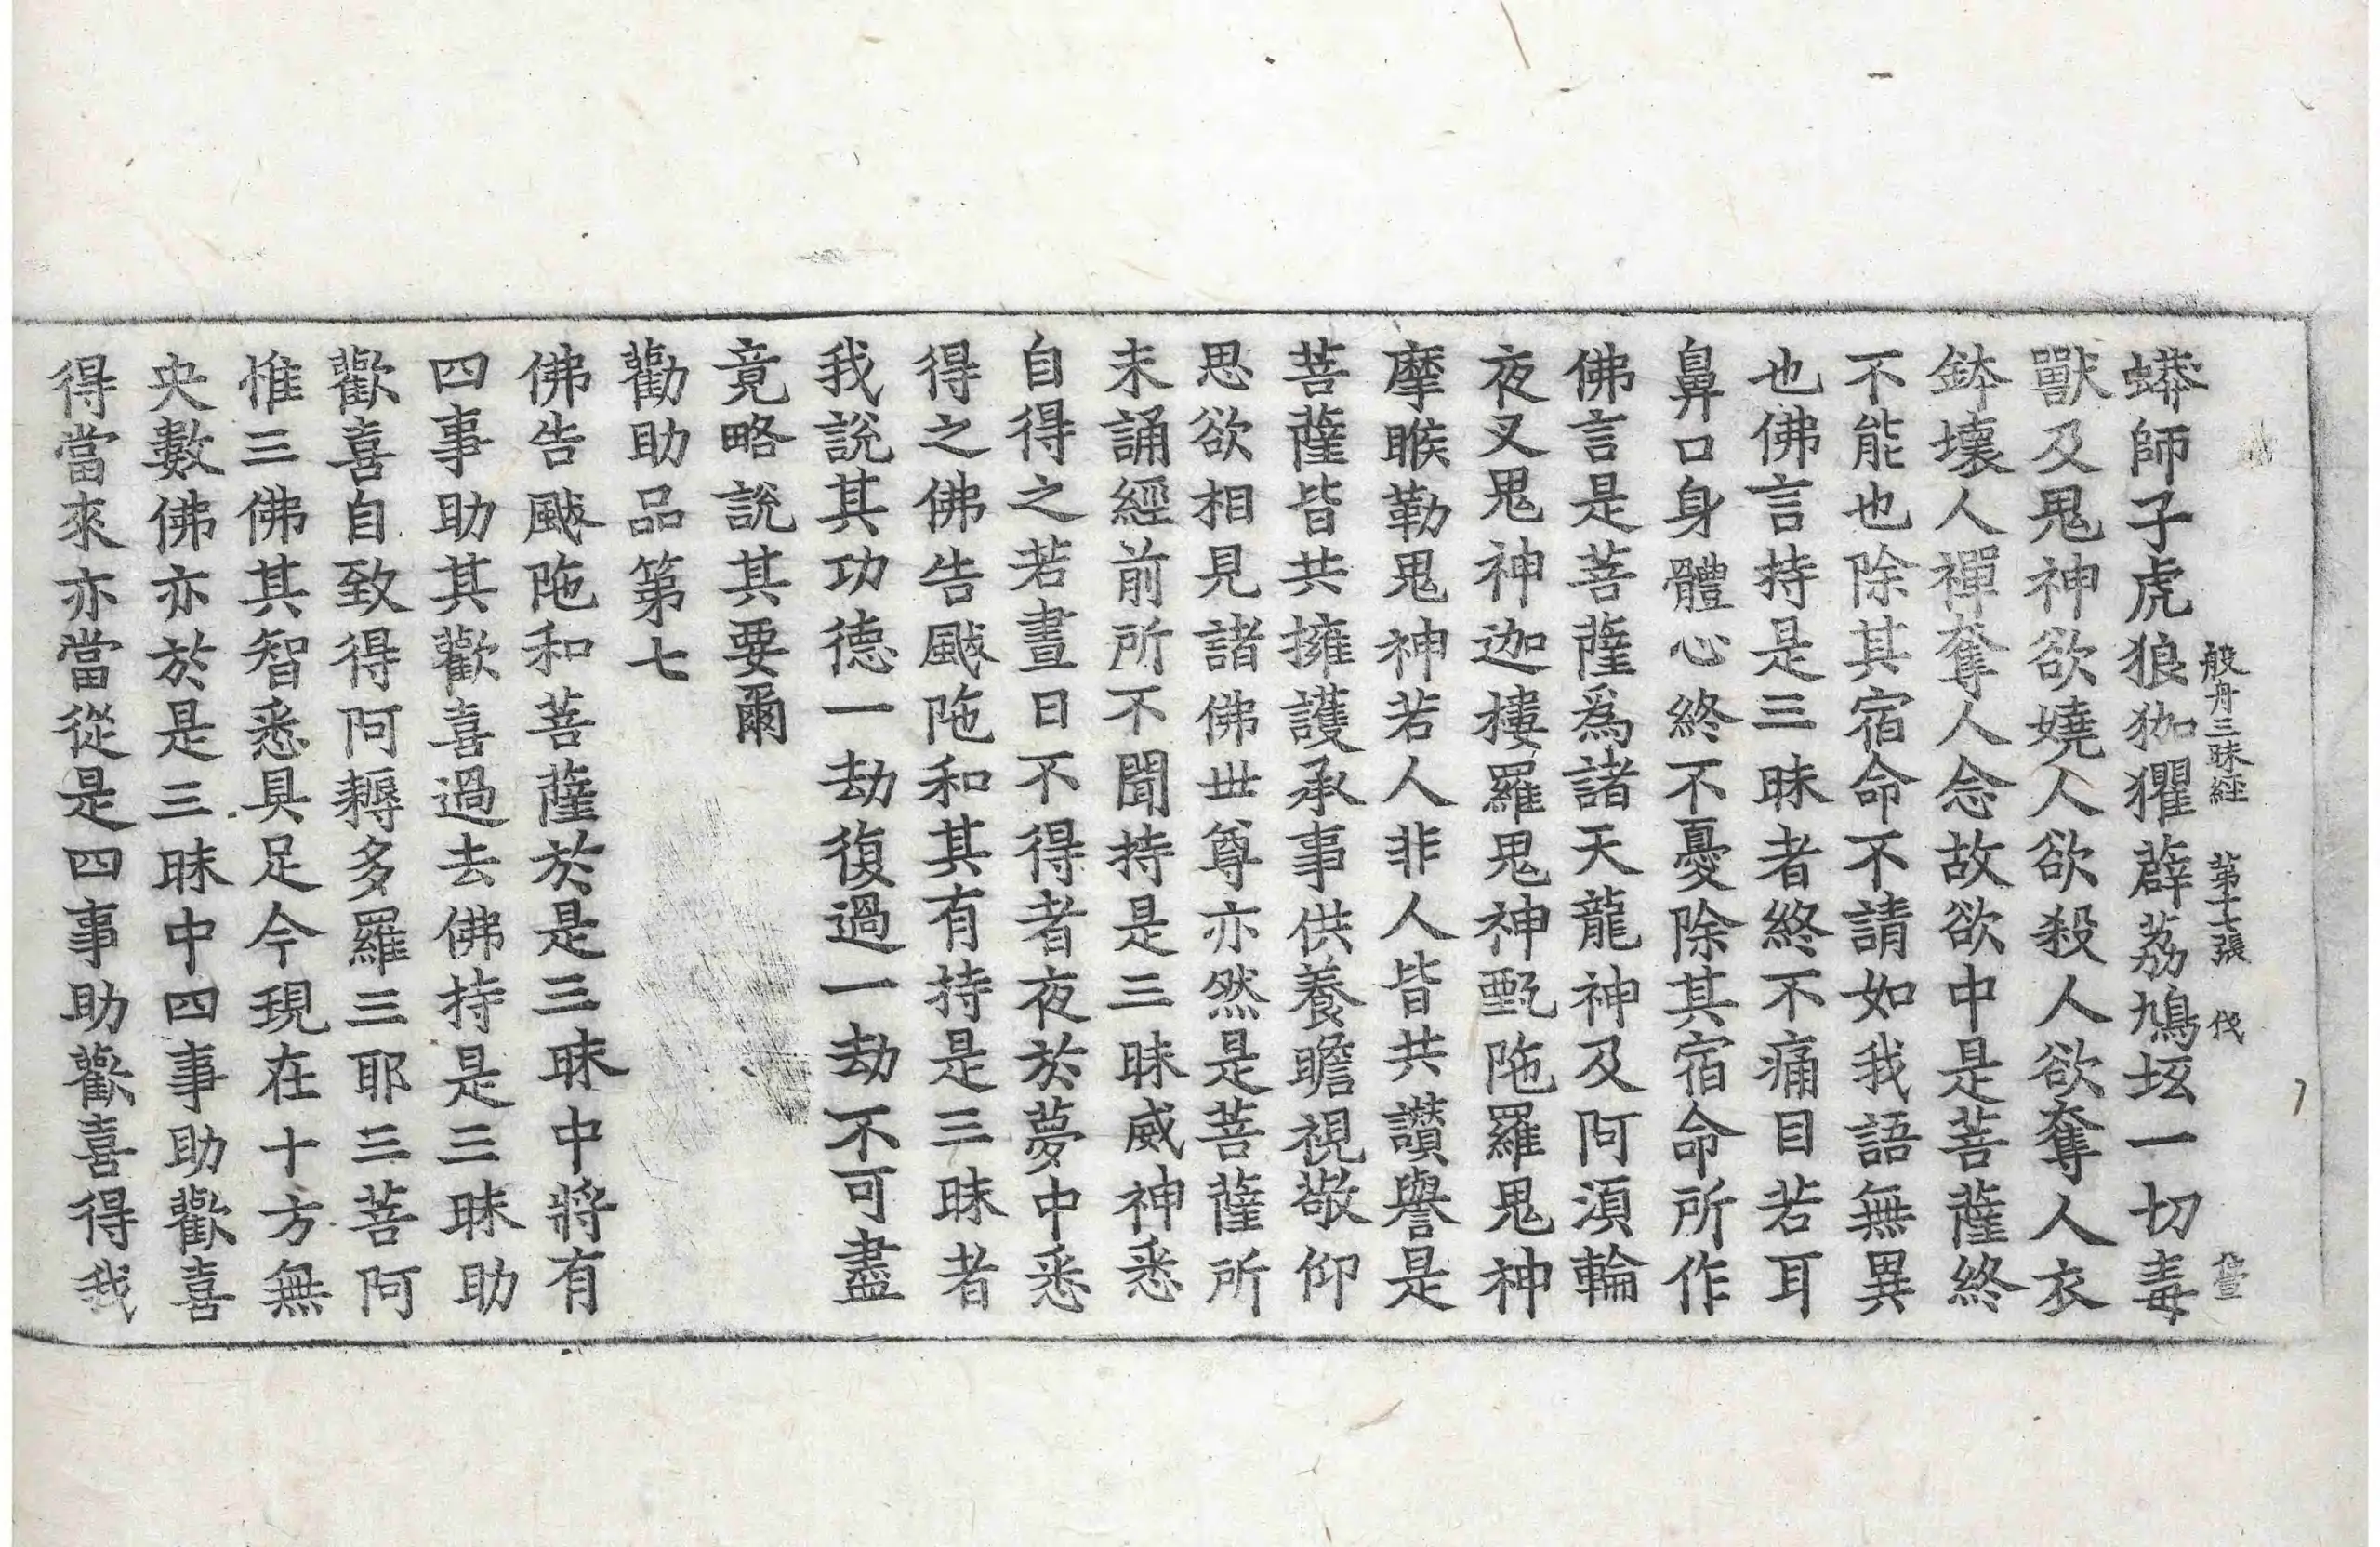 蟒師子虎狼狖玃薜荔鳩坹一切毒
般舟三昧經 第十七張 伐
獸及鬼神欲嬈人欲殺人欲奪人衣
鉢壞人禪奪人念故欲中是菩薩終
不能也除其宿命不請如我語無異
也佛言持是三昧者終不痛目若耳
鼻口身體心終不憂除其宿命所作
佛言是菩薩爲諸天龍神及阿須輪
夜叉鬼神迦樓羅鬼神甄陁羅鬼神
摩睺勒鬼神若人非人皆共讃譽是
菩薩皆共擁護承事供養瞻視敬仰
思欲相見諸佛世尊亦然是菩薩所
未誦經前所不聞持是三昧威神悉
自得之若晝日不得者夜於夢中悉
得之佛告颰陁和其有持是三昧者
我說其功德一劫復過一劫不可盡
竟略說其要爾
勸助品第七
佛告颰陁和菩薩於是三昧中將有
四事助其歡喜過去佛持是三昧助
歡喜自致得阿耨多羅三耶三菩阿
惟三佛其智悉具足今現在十方無
央數佛亦於是三昧中四事助歡喜
得當來亦當從是四事助歡喜得我